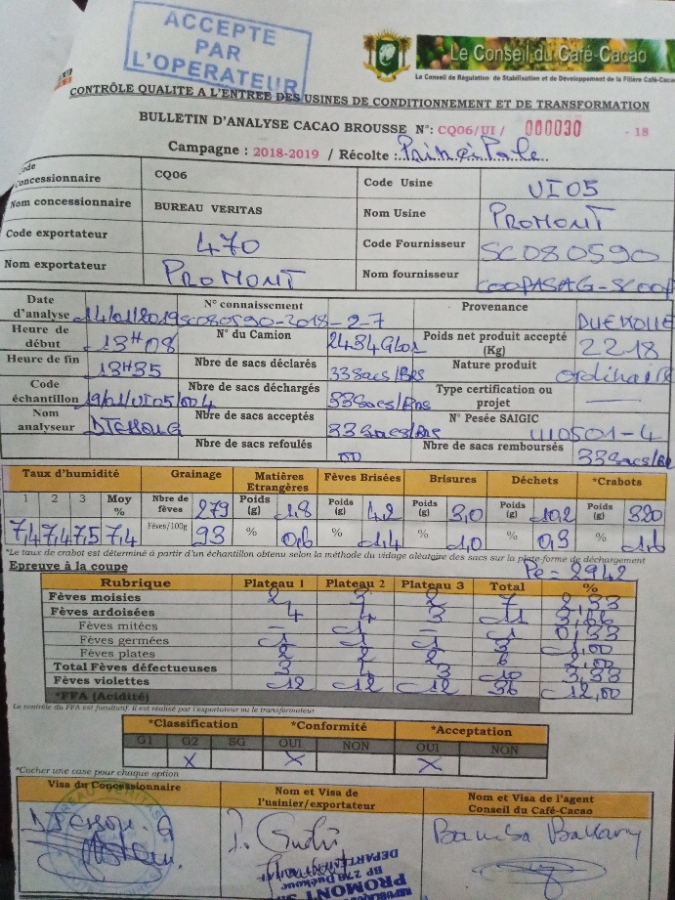 ACCEPTE
PAR
L'OPERATEUR
Le Conseil du Café-Cacao
Le Conseil de Régulation de Stabilisation et de Développement de la Filière Café-Cacao
CONTRÔLE QUALITE A L'ENTREE DES USINES DE CONDITIONNEMENT ET DE TRANSFORMATION
BULLETIN D'ANALYSE CACAO BROUSSE N°: CQ06/UI/ 000030 - 18
Campagne : 2018-2019 / Récolte : Principale
Code concessionnaire CQ06 Code Usine UI05
Nom concessionnaire BUREAU VERITAS Nom Usine PROMONT
Code exportateur 470 Code Fournisseur SC080590
Nom exportateur PROMONT Nom fournisseur COOPASAG-SCOOP
Date d'analyse 14/01/2019 N° connaissement SC080590-2018-2-7 Provenance DUEKOUE
Heure de début 13H08 N° du Camion 2434GL01 Poids net produit accepté (Kg) 2218
Heure de fin 13H35 Nbre de sacs déclarés 33Sacs/Brs Nature produit ordinaire
Code échantillon 19/01/UI05/004 Nbre de sacs déchargés 33Sacs/Brs Type certification ou projet —
Nom analyseur Nbre de sacs acceptés 33Sacs/Brs N° Pesée SAIGIC UI0501-4
Nbre de sacs refoulés 00 Nbre de sacs remboursés 33Sacs/Br
Taux d'humidité Grainage Matières Etrangères Fèves Brisées Brisures Déchets *Crabots
1 2 3 Moy % Nbre de fèves 279 Poids (g) 1,8 Poids (g) 4,2 Poids (g) 3,0 Poids (g) 10,2 Poids (g) 320
7,4 7,4 7,5 7,4 Fèves/100g 93 % 0,6 % 1,4 % 1,0 % 0,3 % 1,6
*Le taux de crabot est déterminé à partir d'un échantillon obtenu selon la méthode du vidage aléatoire des sacs sur la plate-forme de déchargement
Epreuve à la coupe Pe = 2942
Rubrique Plateau 1 Plateau 2 Plateau 3 Total %
Fèves moisies 2 3 2 7 2,33
Fèves ardoisées 4 4 3 11 3,66
Fèves mitées - 1 - 1 0,33
Fèves germées 1 1 1 3 1,00
Fèves plates 2 2 2 6 2,00
Total Fèves défectueuses 3 4 3 10 3,33
Fèves violettes 12 12 12 36 12,00
*FFA (Acidité)
Le contrôle du FFA est facultatif. Il est réalisé par l'exportateur ou le transformateur
*Classification *Conformité *Acceptation
G1 G2 SG OUI NON OUI NON
X X X
*Cocher une case pour chaque option
Visa du Concessionnaire
Nom et Visa de l'usinier/exportateur
Nom et Visa de l'agent Conseil du Café-Cacao
Bamba Bakary
BP 278 Duékoué
PROMONT